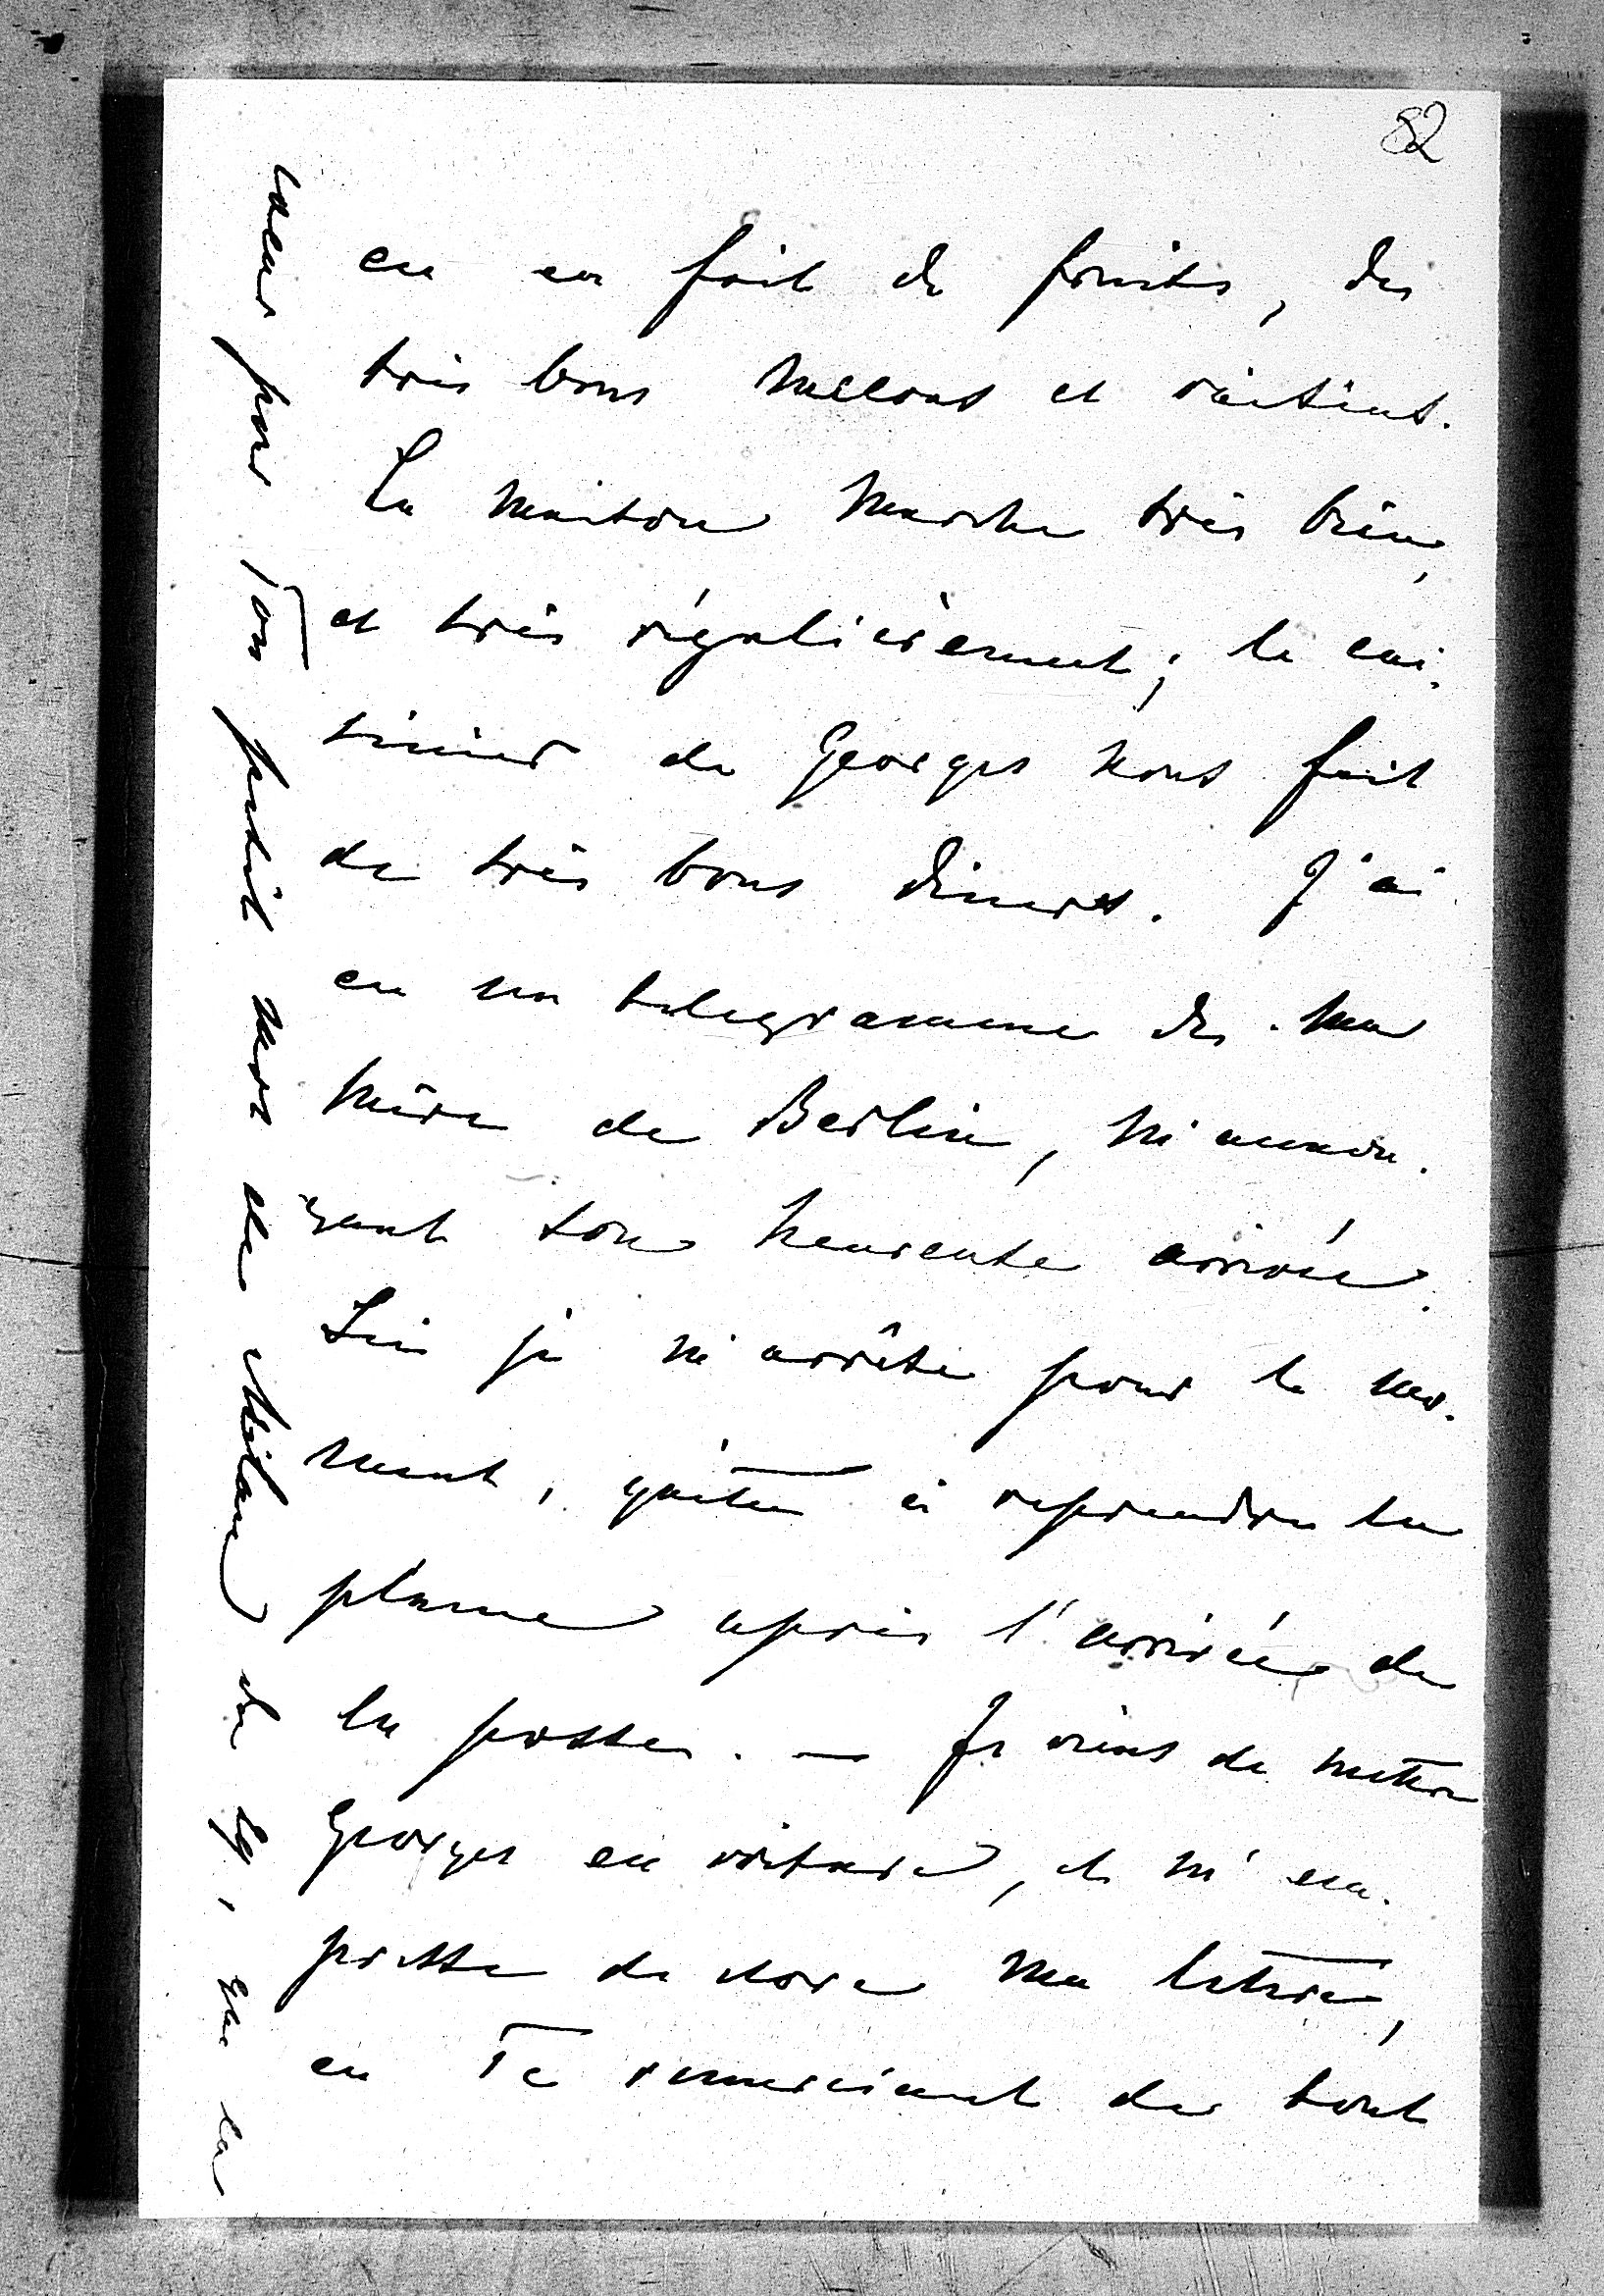 82
eu en fait de fruits, des
très bons melons et raisins.
La maison marche très bien,
et très régulièrement; le cui-
sinier de Georges nous fait
de très bons diners. J'ai
eu un telegramme de ma
mère de Berlin, m'annon-
çant son heureuse arrivée.
Sur je m'arrête pour le mo-
ment, quitte à reprendre la
plume après l'arrivée de
la poste. — Je viens de mettre
Georges en voiture, et m'em-
presse de clore ma lettre,
en Te remerciant de tout
coeur pour Ton petit mot de Milan du 19, que la